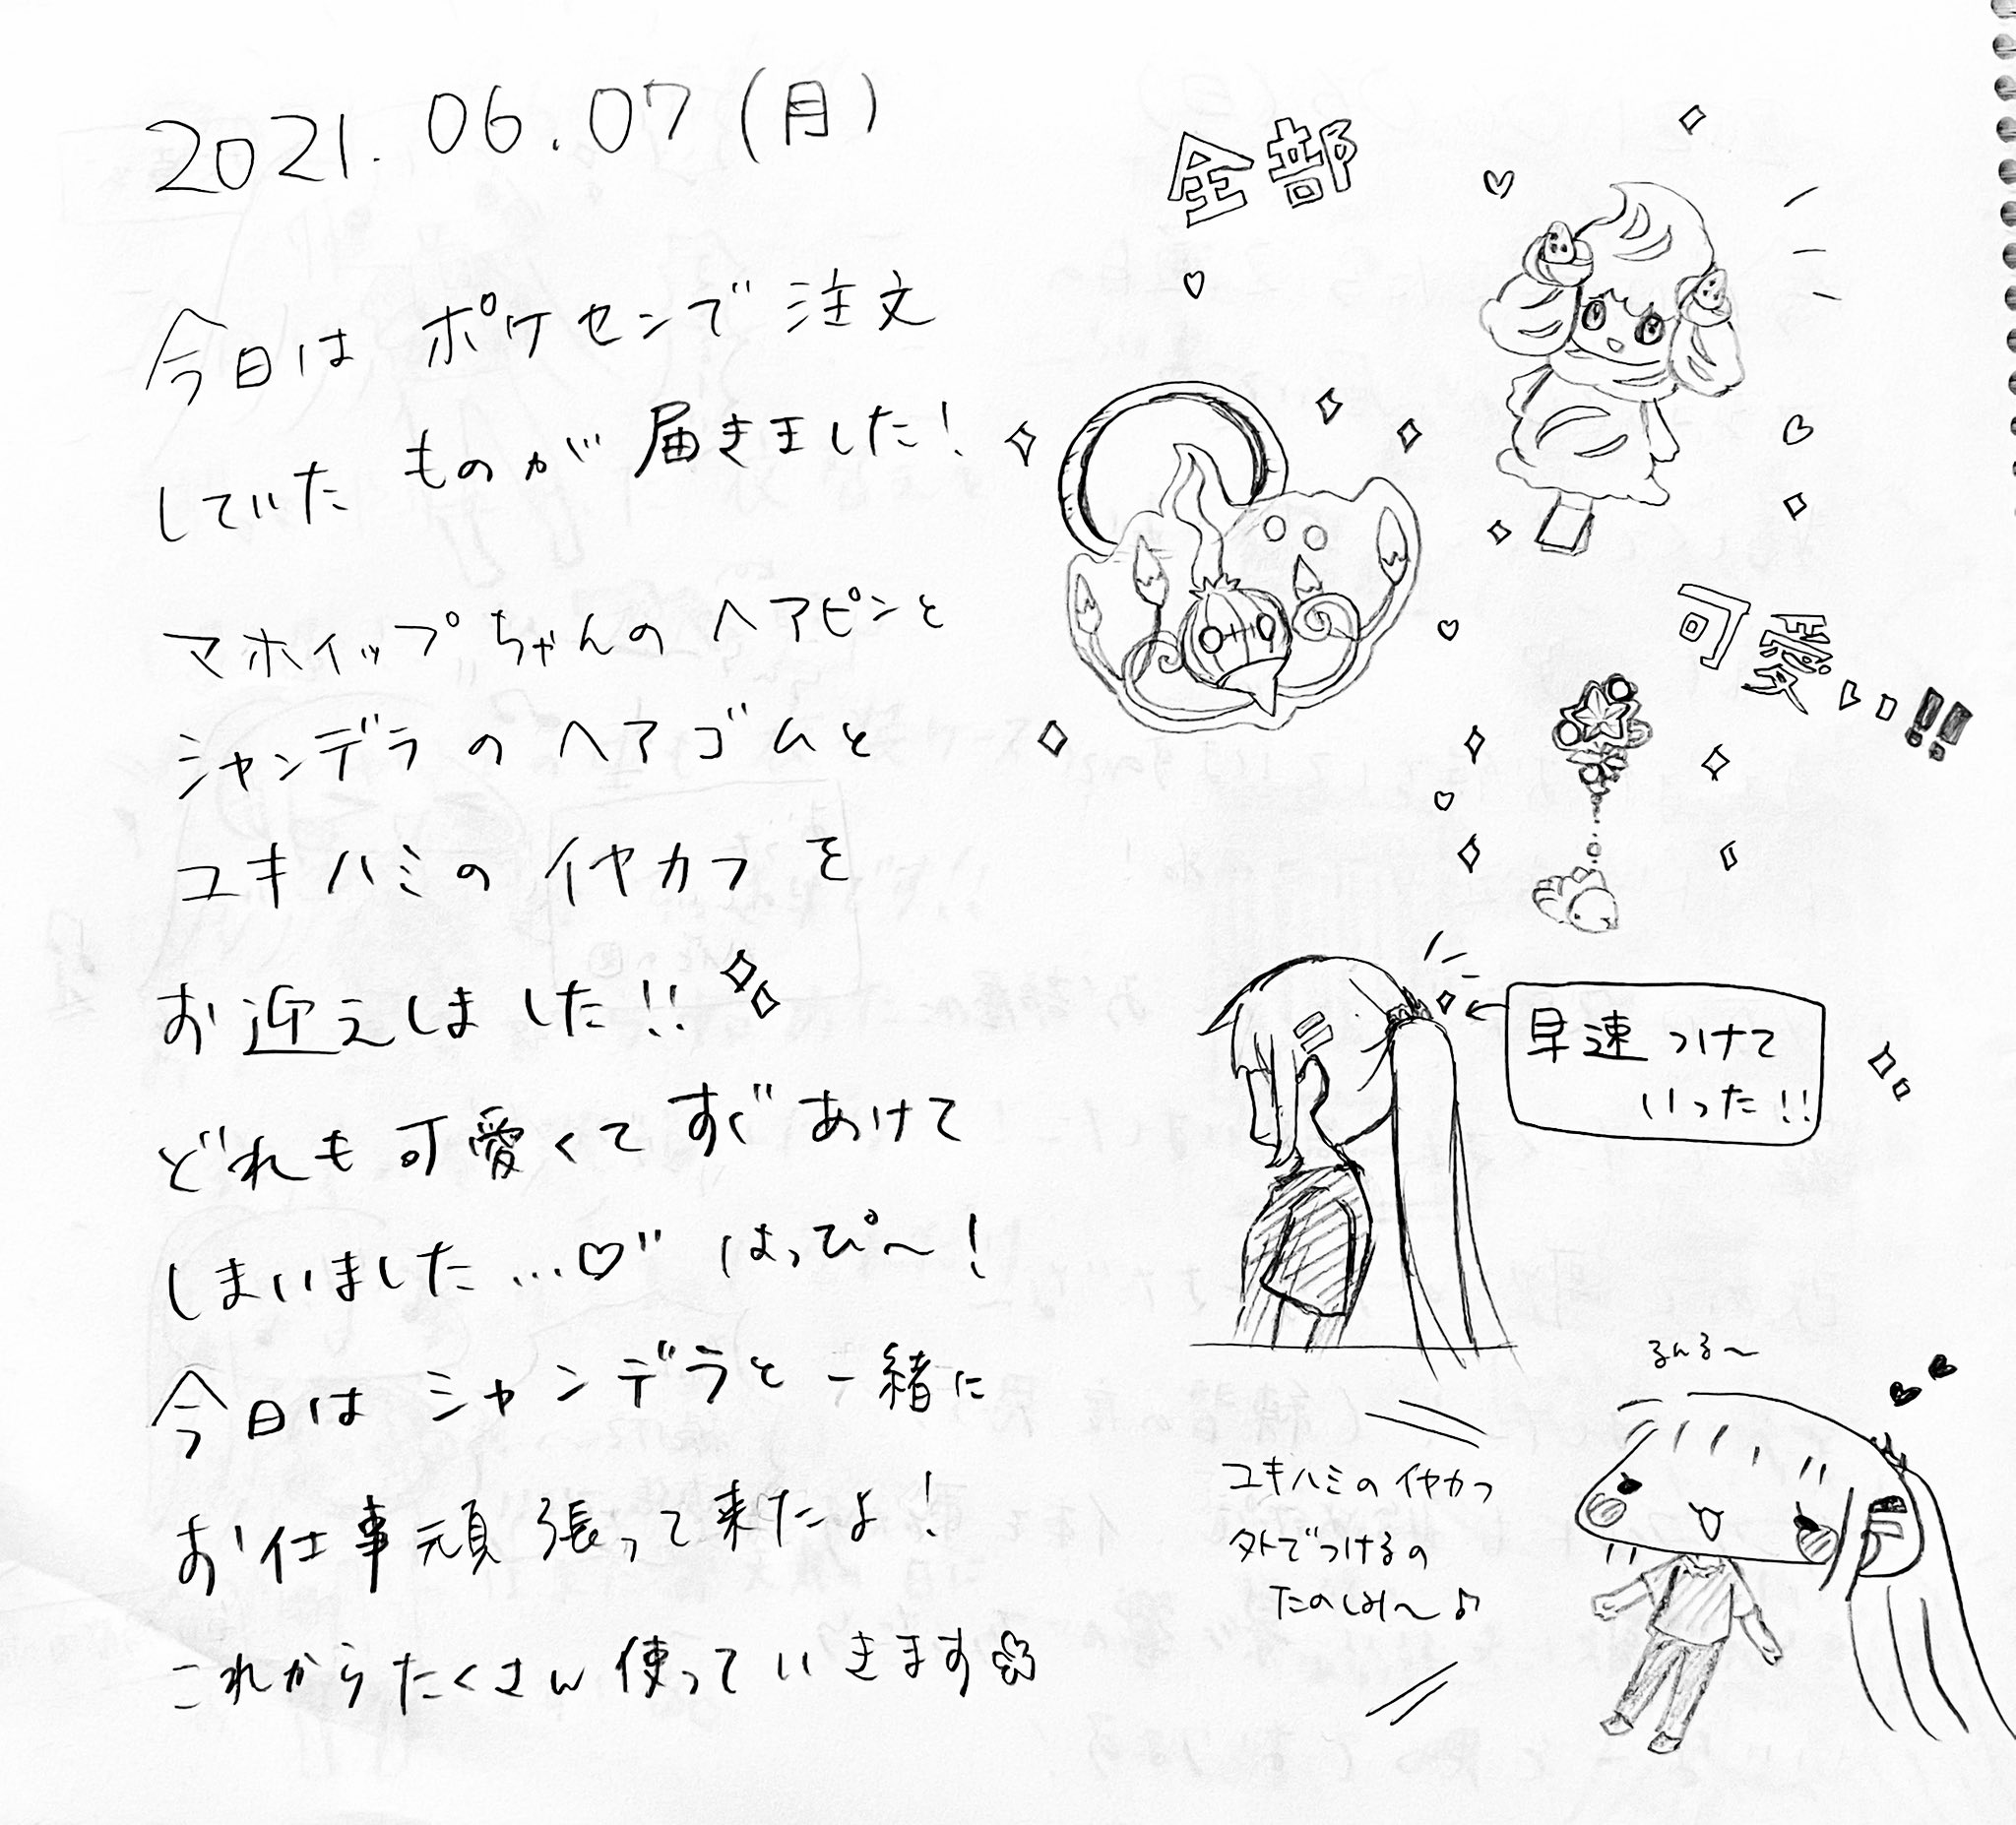 2021.06.07(月)
今日は ポケセンで 注文
していた ものが 届きました!
マホイップちゃんの ヘアピンと
シャンデラの ヘアゴムと
ユキハミの イヤカフを
お迎えしました!!
どれも可愛くて すぐ あけて
しまいました…♡" はっぴ〜!
今日は シャンデラと 一緒に
お仕事頑張って来たよ!
これからたくさん 使っていきます
全部
可愛い!!
早速つけて
いった!!
るんる〜
ユキハミの イヤカフ
外でつけるの
たのしみ〜♪